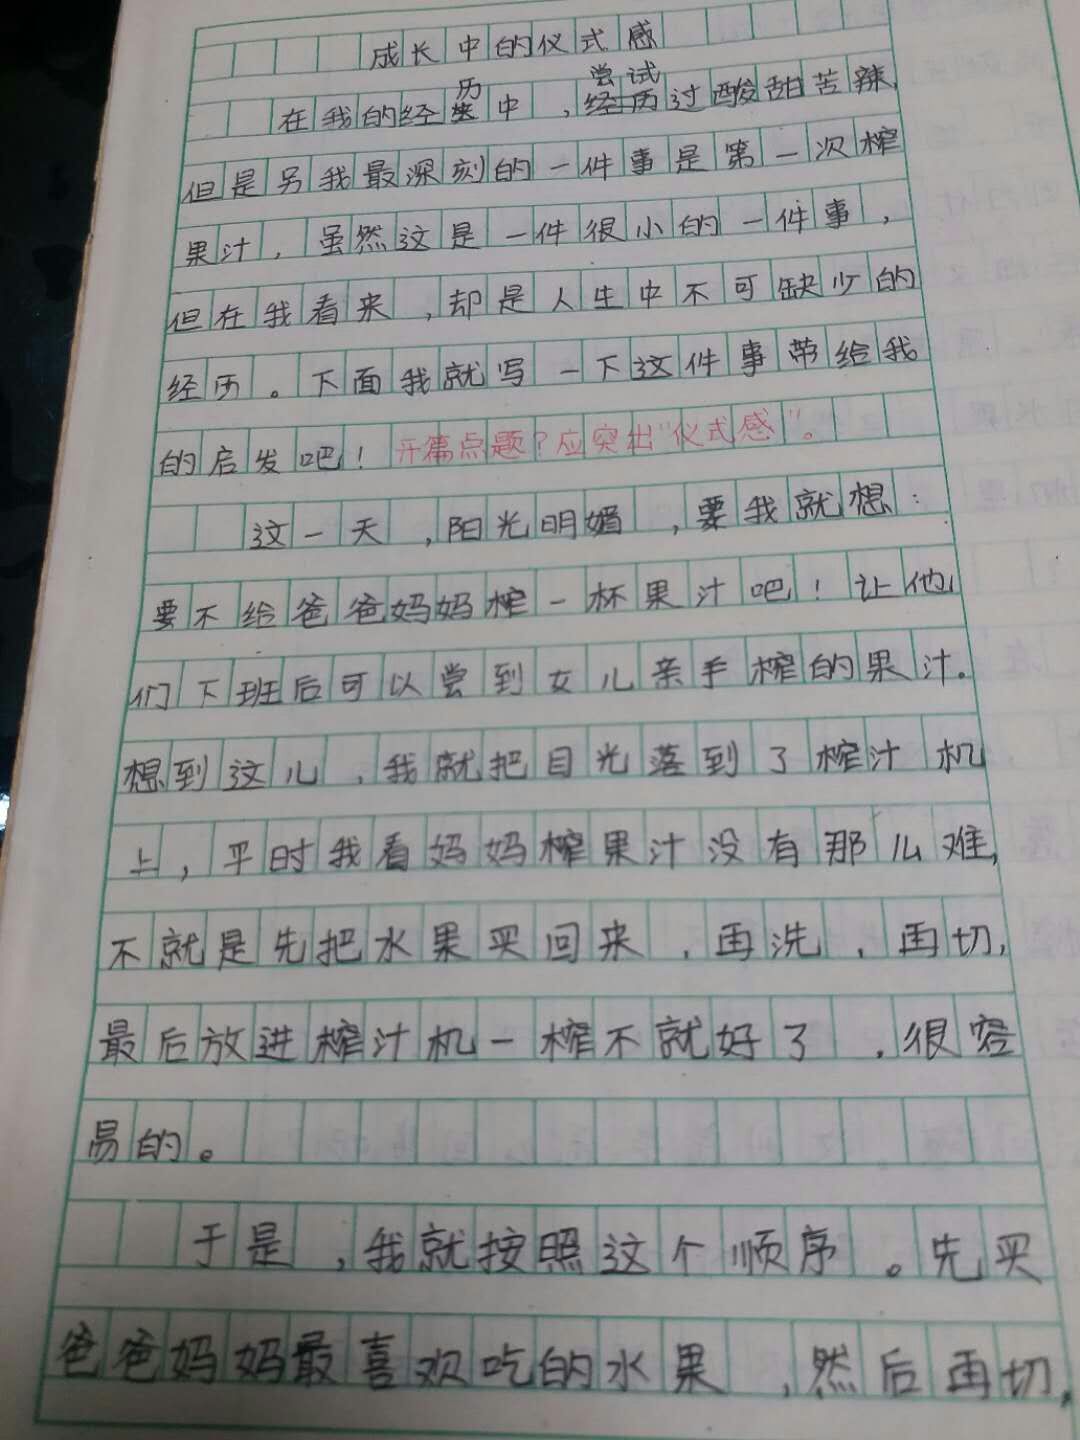 成长中的仪式感
历 尝试
在我的经中，经历过酸甜苦辣，
但是另我最深刻的一件事是第一次榨
果汁，虽然这是一件很小的一件事，
但在我看来，却是人生中不可缺少的
经历。下面我就写一下这件事带给我
的启发吧！开篇点题？应突出"仪式感"。
这一天，阳光明媚，要我就想：
要不给爸爸妈妈榨一杯果汁吧！让他
们下班后可以尝到女儿亲手榨的果汁。
想到这儿，我就把目光落到了榨汁机
上，平时我看妈妈榨果汁没有那么难，
不就是先把水果买回来，再洗，再切，
最后放进榨汁机一榨不就好了，很容
易的。
于是，我就按照这个顺序。先买
爸爸妈妈最喜欢吃的水果，然后再切，